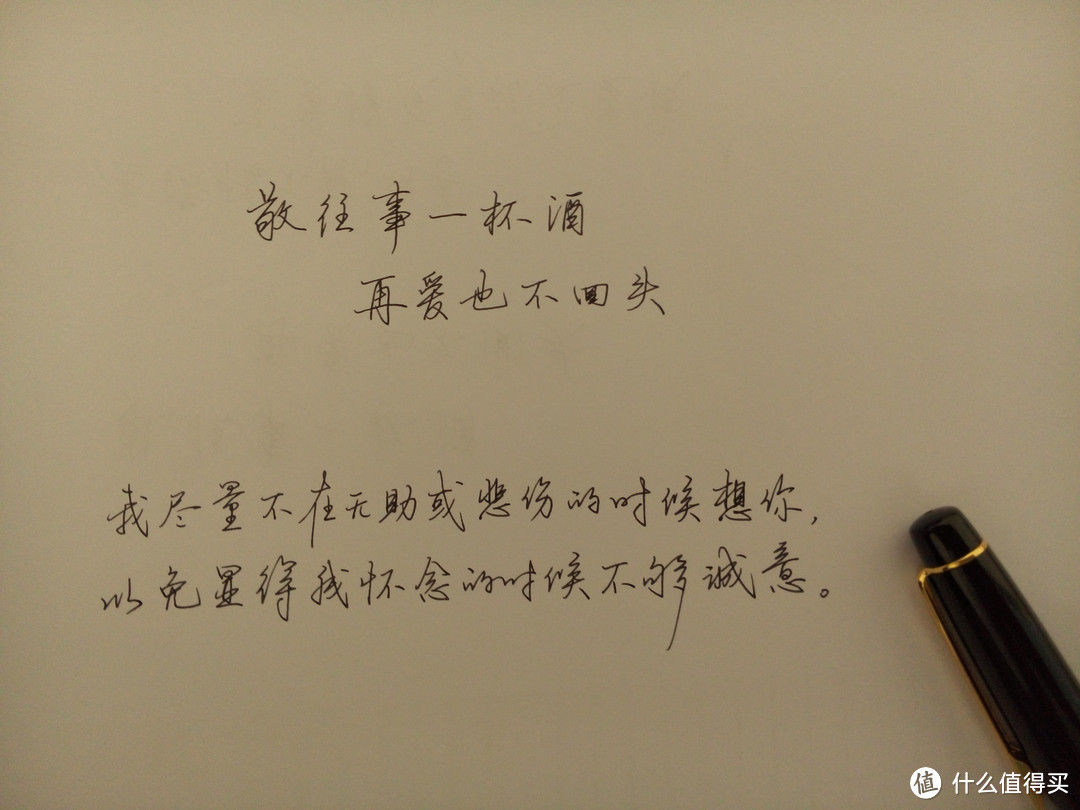 敬往事一杯酒
再爱也不回头
我尽量不在无助或悲伤的时候想你,
以免显得我怀念的时候不够诚意。
值 什么值得买